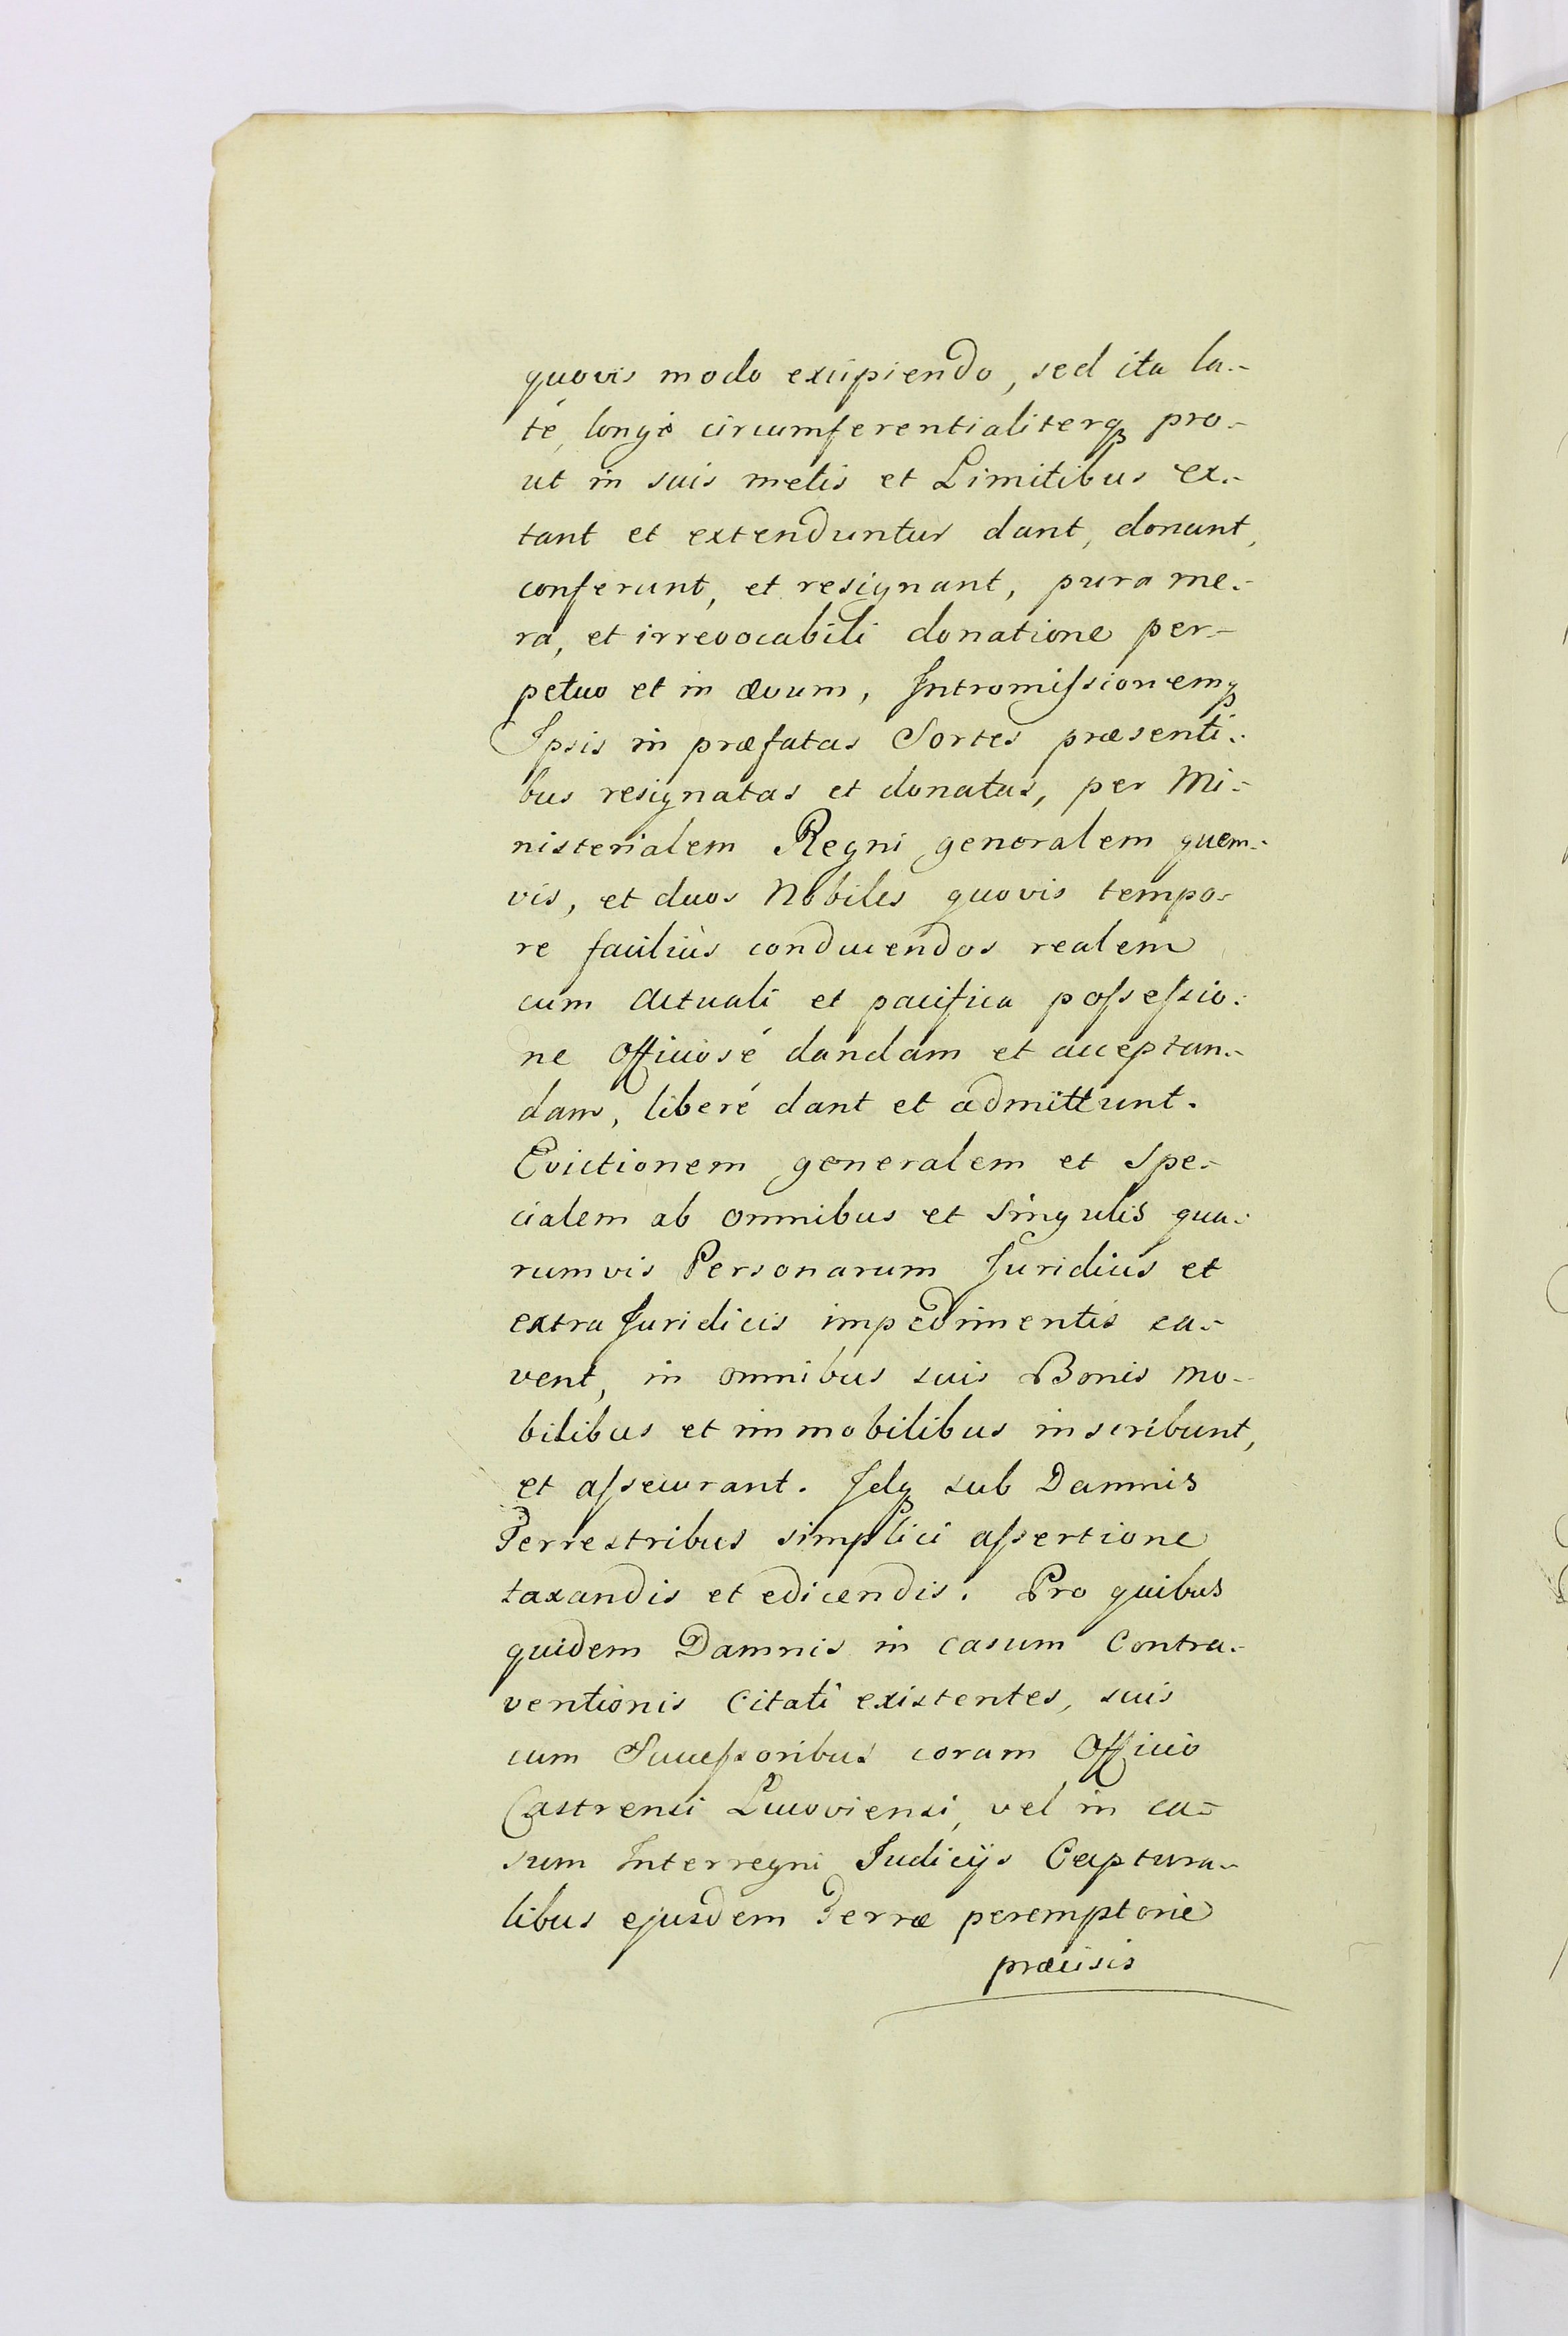 quovis modo excipiendo, sed ita la-
té, longé circumferentialiterq₃ pro-
ut in suis metis et Limitibus ex-
tant et extenduntur dant, donant,
conferunt, et resignant, pura me-
ra, et irrevocabili donatione per-
petuo et in ævum, Intromiſsionemq₃
Ipsis in præfatas Sortes præsenti-
bus resignatas et donatas, per Mi-
nisterialem Regni generalem quem-
vis, et duos Nobiles quovis tempo-
re faciliùs conducendos realem
cum actuali et pacifica poſseſsio-
ne Officiosé dandam et acceptan-
dam, liberé dant et admittunt.
Evictionem generalem et spe-
cialem ab omnibus et singulis qua-
rumvis Personarum Juridicis et
extra Juridicis impedimentis ca-
vent, in omnibus suis Bonis mo-
bilibus et immobilibus inscribunt,
et aſsecurant. Idq₃ sub Damnis
Terrestribus simplici aſsertione
taxandis et edicendis. Pro quibus
quidem Damnis in casum Contra-
ventionis Citati existentes, suis
cum Succeſsoribus coram Officio
Castrensi Lucoviensi, vel in ca-
sum Interregni Judicijs Captura-
libus ejusdem Terræ peremptorie
præcisis